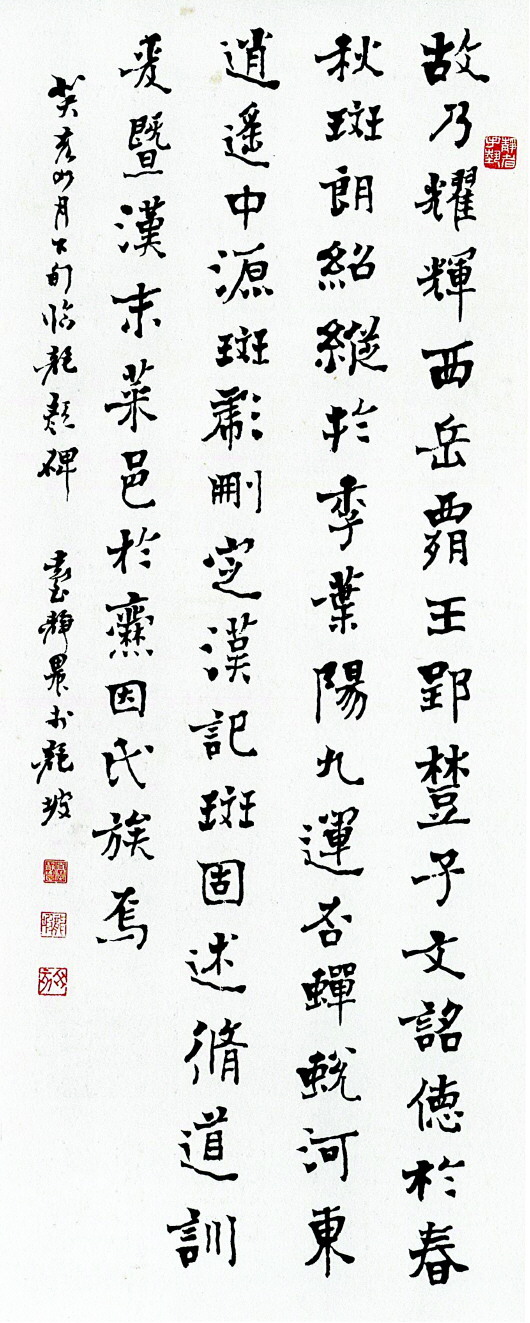 故乃耀輝西岳霸王郢楚子文詺德於春
秋斑朗紹縱於季葉陽九運否蟬蛻河東
逍遙中源斑彪刪定漢記斑固述脩道訓
爰暨漢末菜邑於爨因氏族焉
癸亥如月下旬临龍顏碑 臺靜農於龍坡